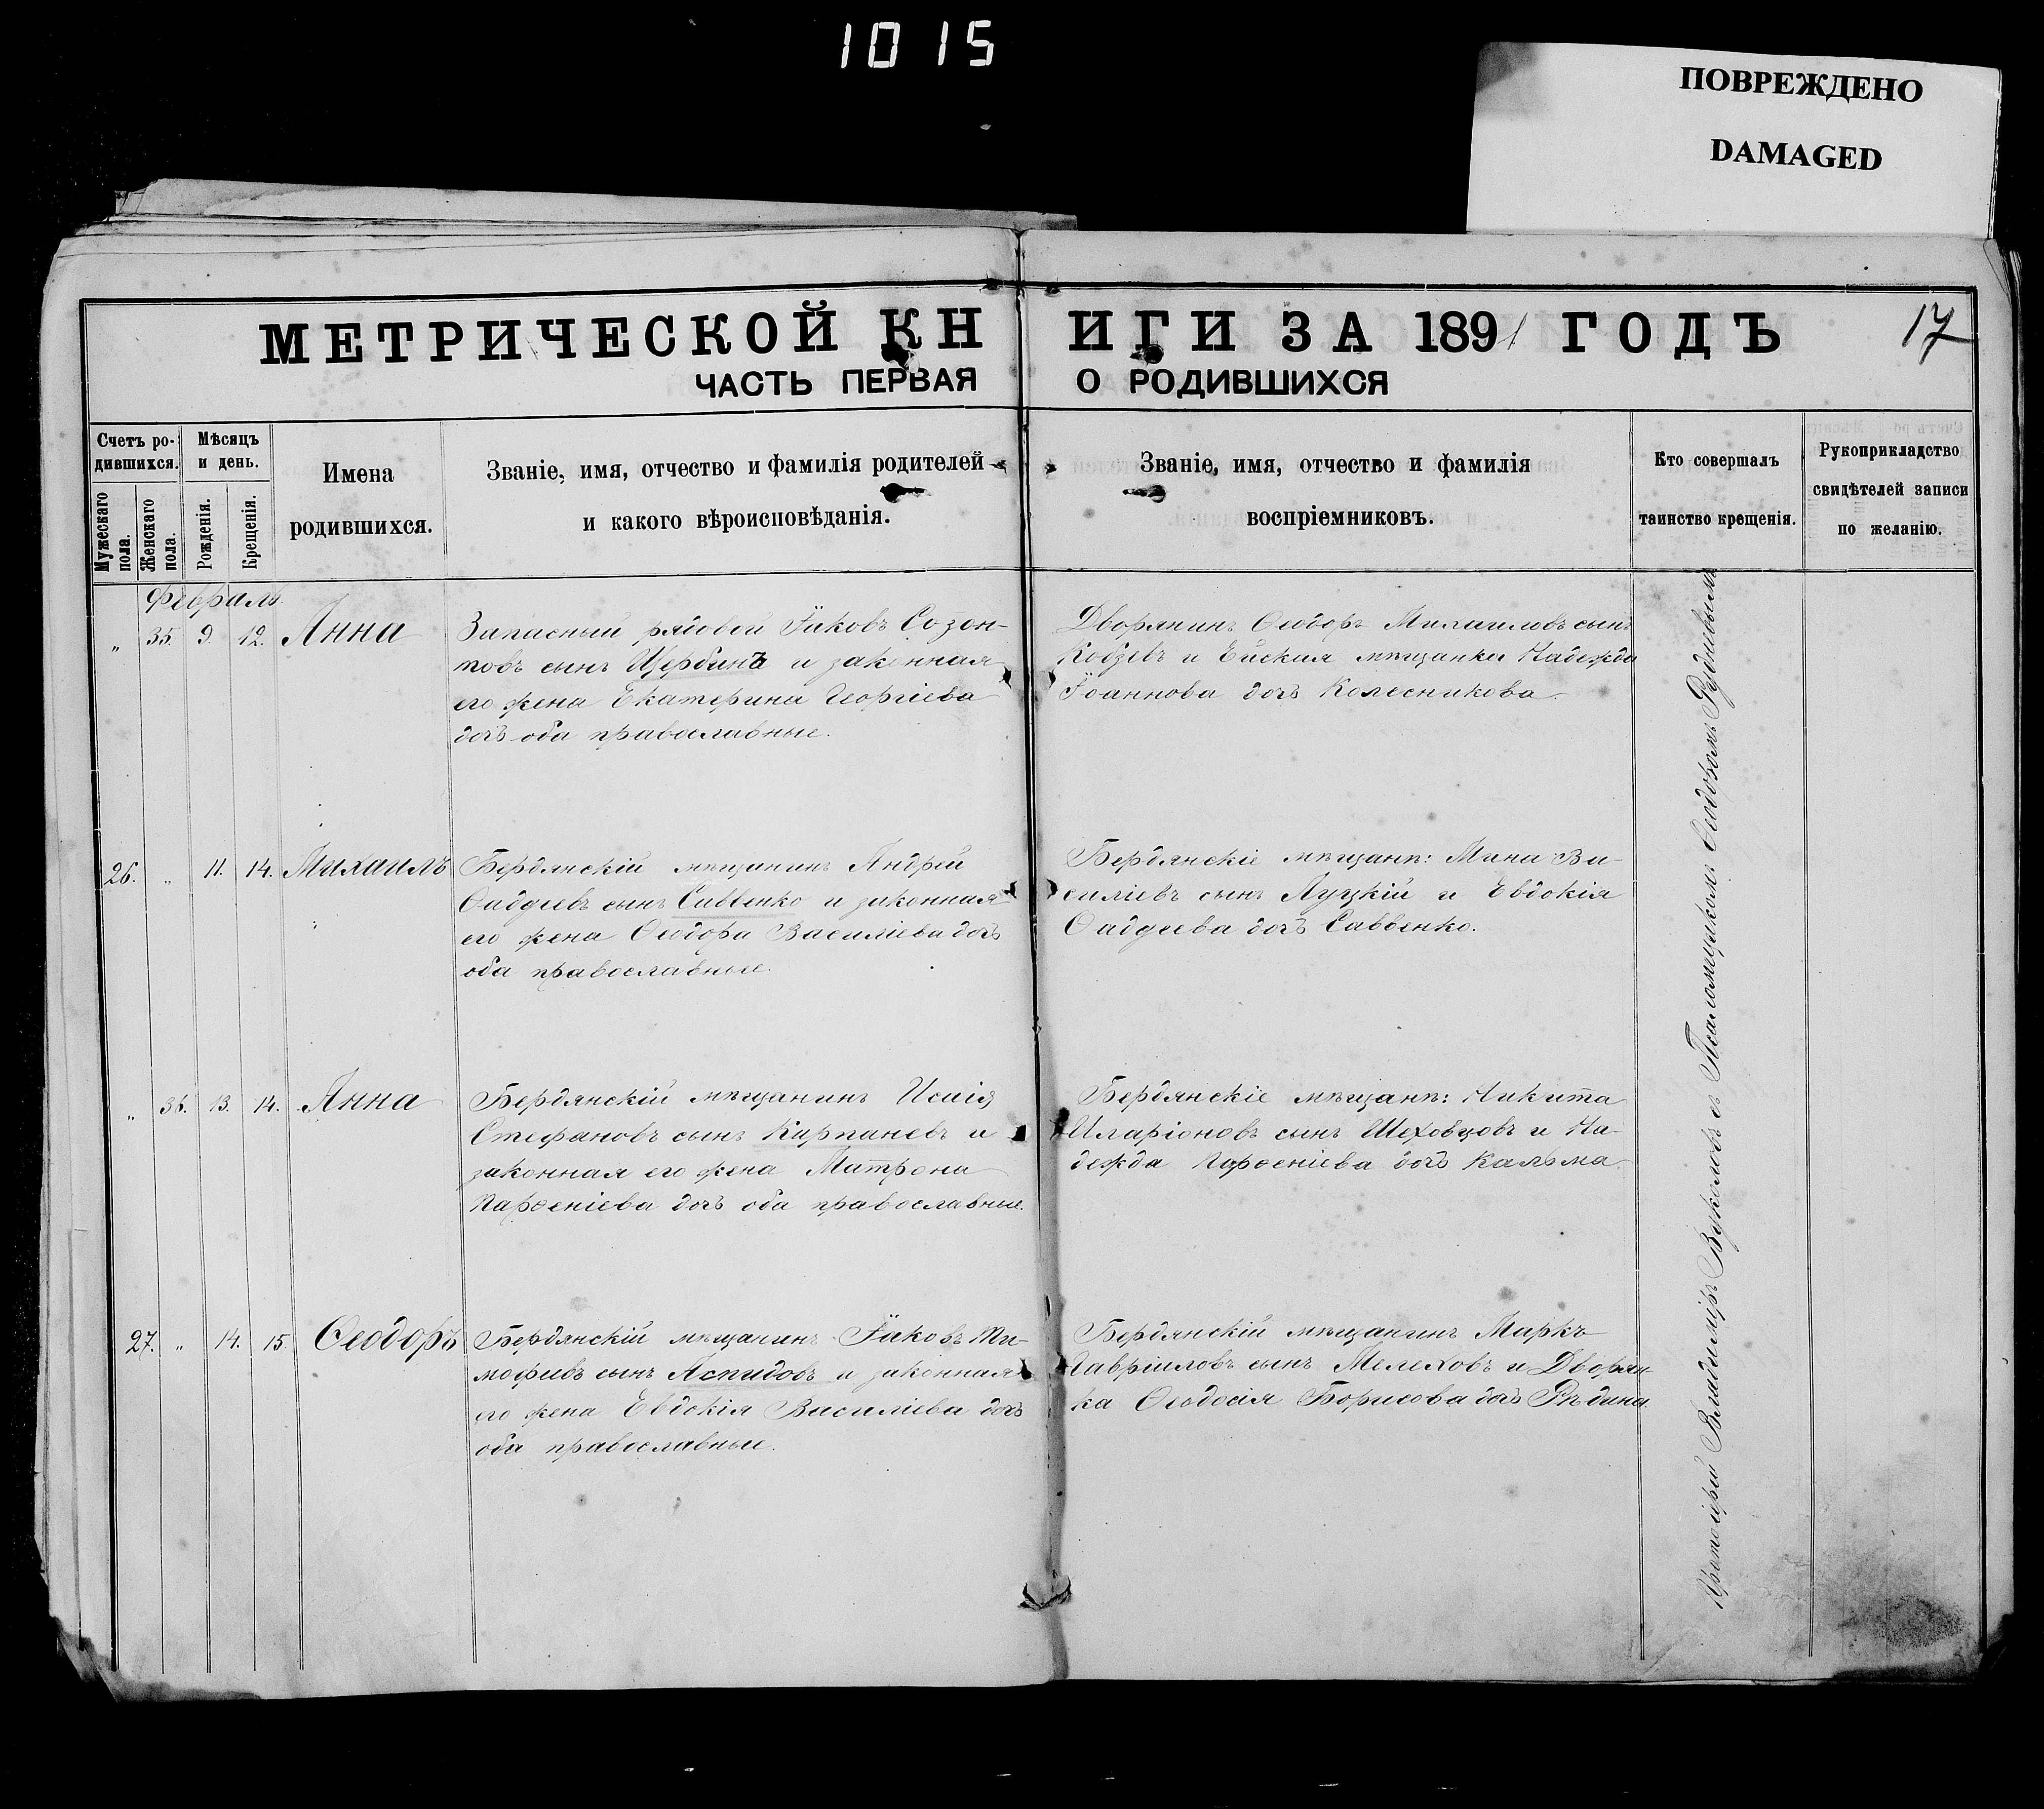 1015
ПОВРЕЖДЕНО
DAMAGED
МЕТРИЧЕСКОЙ КНИГИ ЗА 1891 ГОДЪ
17
ЧАСТЬ ПЕРВАЯ О РОДИВШИХСЯ
Счетъ ро-
дившихся.
Мужескаго пола.
Женскаго пола.
Мѣсяцъ
и день.
Рожденія.
Крещенія.
Имена
родившихся.
Званіе, имя, отчество и фамилія родителей
и какого вѣроисповѣданія.
Званіе, имя, отчество и фамилія
воспріемниковъ.
Кто совершалъ
таинство крещенія.
Рукоприкладство
свидѣтелей записи
по желанію.
Февраль.
„ 35. 9. 12. Анна
Запасный рядовой Іаковъ Созон-
товъ сынъ Щербина и законная
его жена Екатерина Георгіева
дочь оба православные.
Дворянинъ Ѳеодоръ Михаиловъ сынъ
Кобзевъ и Ейская мѣщанка Надежда
Іоаннова дочь Колесникова.
26. „ 11. 14. Михаилъ
Бердянскій мѣщанинъ Андрей
Ѳаддеевъ сынъ Савенко и законная
его жена Ѳеодора Василіева дочь
оба православные.
Бердянскіе мѣщане: Мина Ва-
силіевъ сынъ Луцкій и Евдокія
Ѳаддеева дочь Саввенко.
„ 36. 13. 14. Анна
Бердянскій мѣщанинъ Исаія
Стефановъ сынъ Карпаневъ и
законная его жена Матрона
Парѳеніева дочь оба православные.
Бердянскіе мѣщане: Никита
Иларіоновъ сынъ Шеховцовъ и На-
дежда Парѳеніева дочь Кальма.
27. „ 14. 15. Ѳеодоръ
Бердянскій мѣщанинъ Іаковъ Ти-
мофеевъ сынъ Аспидовъ и законная
его жена Евдокія Василіева дочь
оба православные.
Бердянскій мѣщанинъ Маркъ
Гавріиловъ сынъ Мелеховъ и Дворян-
ка Ѳеодосія Борисова дочь Рѣдина
Протоіерей Владиміръ Вуколовъ съ Псаломщикомъ Ѳеодоромъ